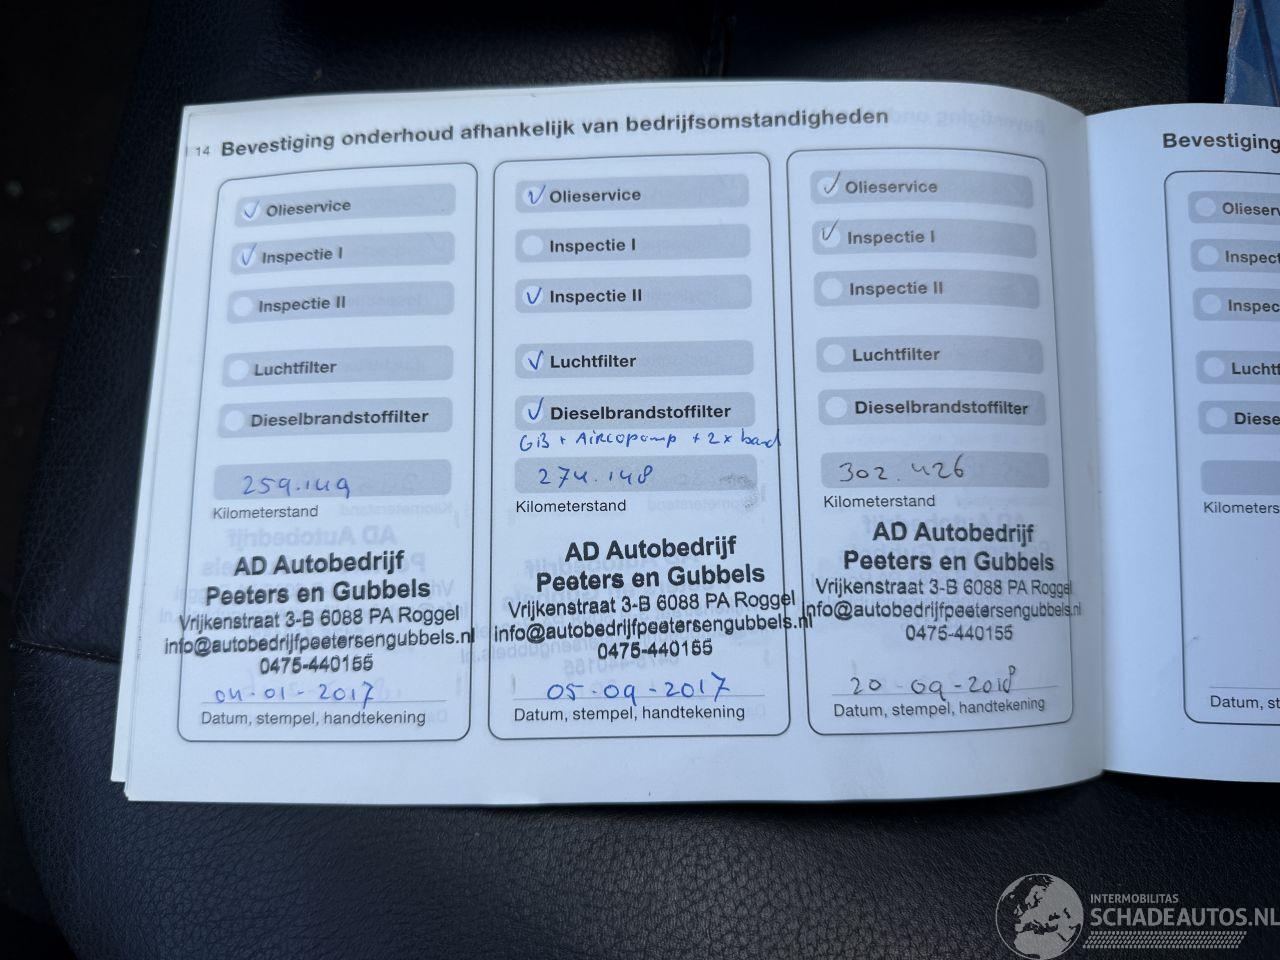 14 Bevestiging onderhoud afhankelijk van bedrijfsomstandigheden
Olieservice
Inspectie I
Inspectie II
Luchtfilter
Dieselbrandstoffilter
259.149
Kilometerstand
AD Autobedrijf
Peeters en Gubbels
Vrijkenstraat 3-B 6088 PA Roggel
info@autobedrijfpeetersengubbels.nl
0475-440155
04-01-2017
Datum, stempel, handtekening
Olieservice
Inspectie I
Inspectie II
Luchtfilter
Dieselbrandstoffilter
GB + Aircopomp + 2x band
274.148
Kilometerstand
AD Autobedrijf
Peeters en Gubbels
Vrijkenstraat 3-B 6088 PA Roggel
info@autobedrijfpeetersengubbels.nl
0475-440155
05-09-2017
Datum, stempel, handtekening
Olieservice
Inspectie I
Inspectie II
Luchtfilter
Dieselbrandstoffilter
302.426
Kilometerstand
AD Autobedrijf
Peeters en Gubbels
Vrijkenstraat 3-B 6088 PA Roggel
info@autobedrijfpeetersengubbels.nl
0475-440155
20-09-2018
Datum, stempel, handtekening
Bevestiging
Olieserv
Inspect
Inspec
Luchtf
Diese
Kilometers
Datum, st
INTERMOBILITAS
SCHADEAUTOS.NL